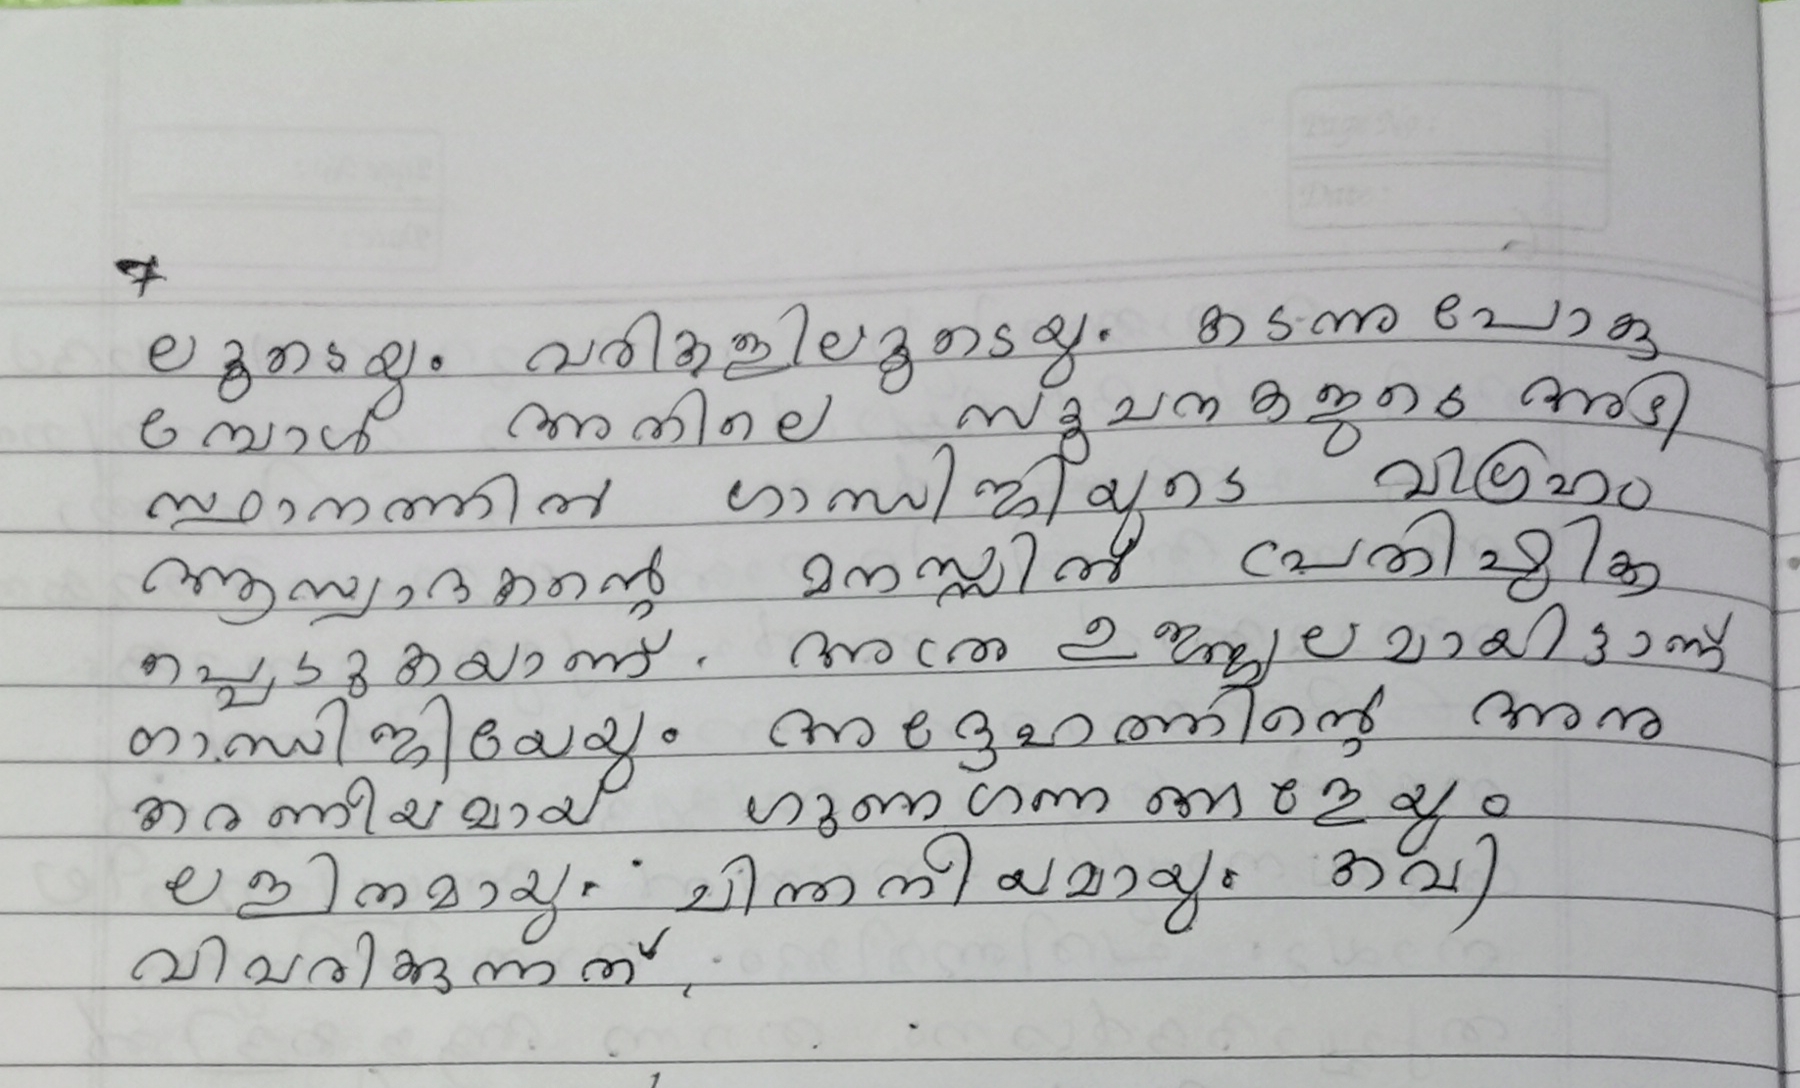 7
ലൂടെയും വരികളിലൂടെയും കടന്നുപോകു
മ്പോൾ അതിലെ സൂചനകളുടെ അടി
സ്ഥാനത്തിൽ ഗാന്ധിജിയുടെ വിഗ്രഹം
ആസ്വാദകന്റെ മനസ്സിൽ പ്രതിഷ്ഠിക്ക
പ്പെടുകയാണ്. അത്ര ഉജ്ജ്വലമായിട്ടാണ്
ഗാന്ധിജിയേയും അദ്ദേഹത്തിന്റെ അനു
കരണീയമായ ഗുണഗണങ്ങളേയും
ലളിതമായും ചിന്തനീയമായും കവി
വിവരിക്കുന്നത്.